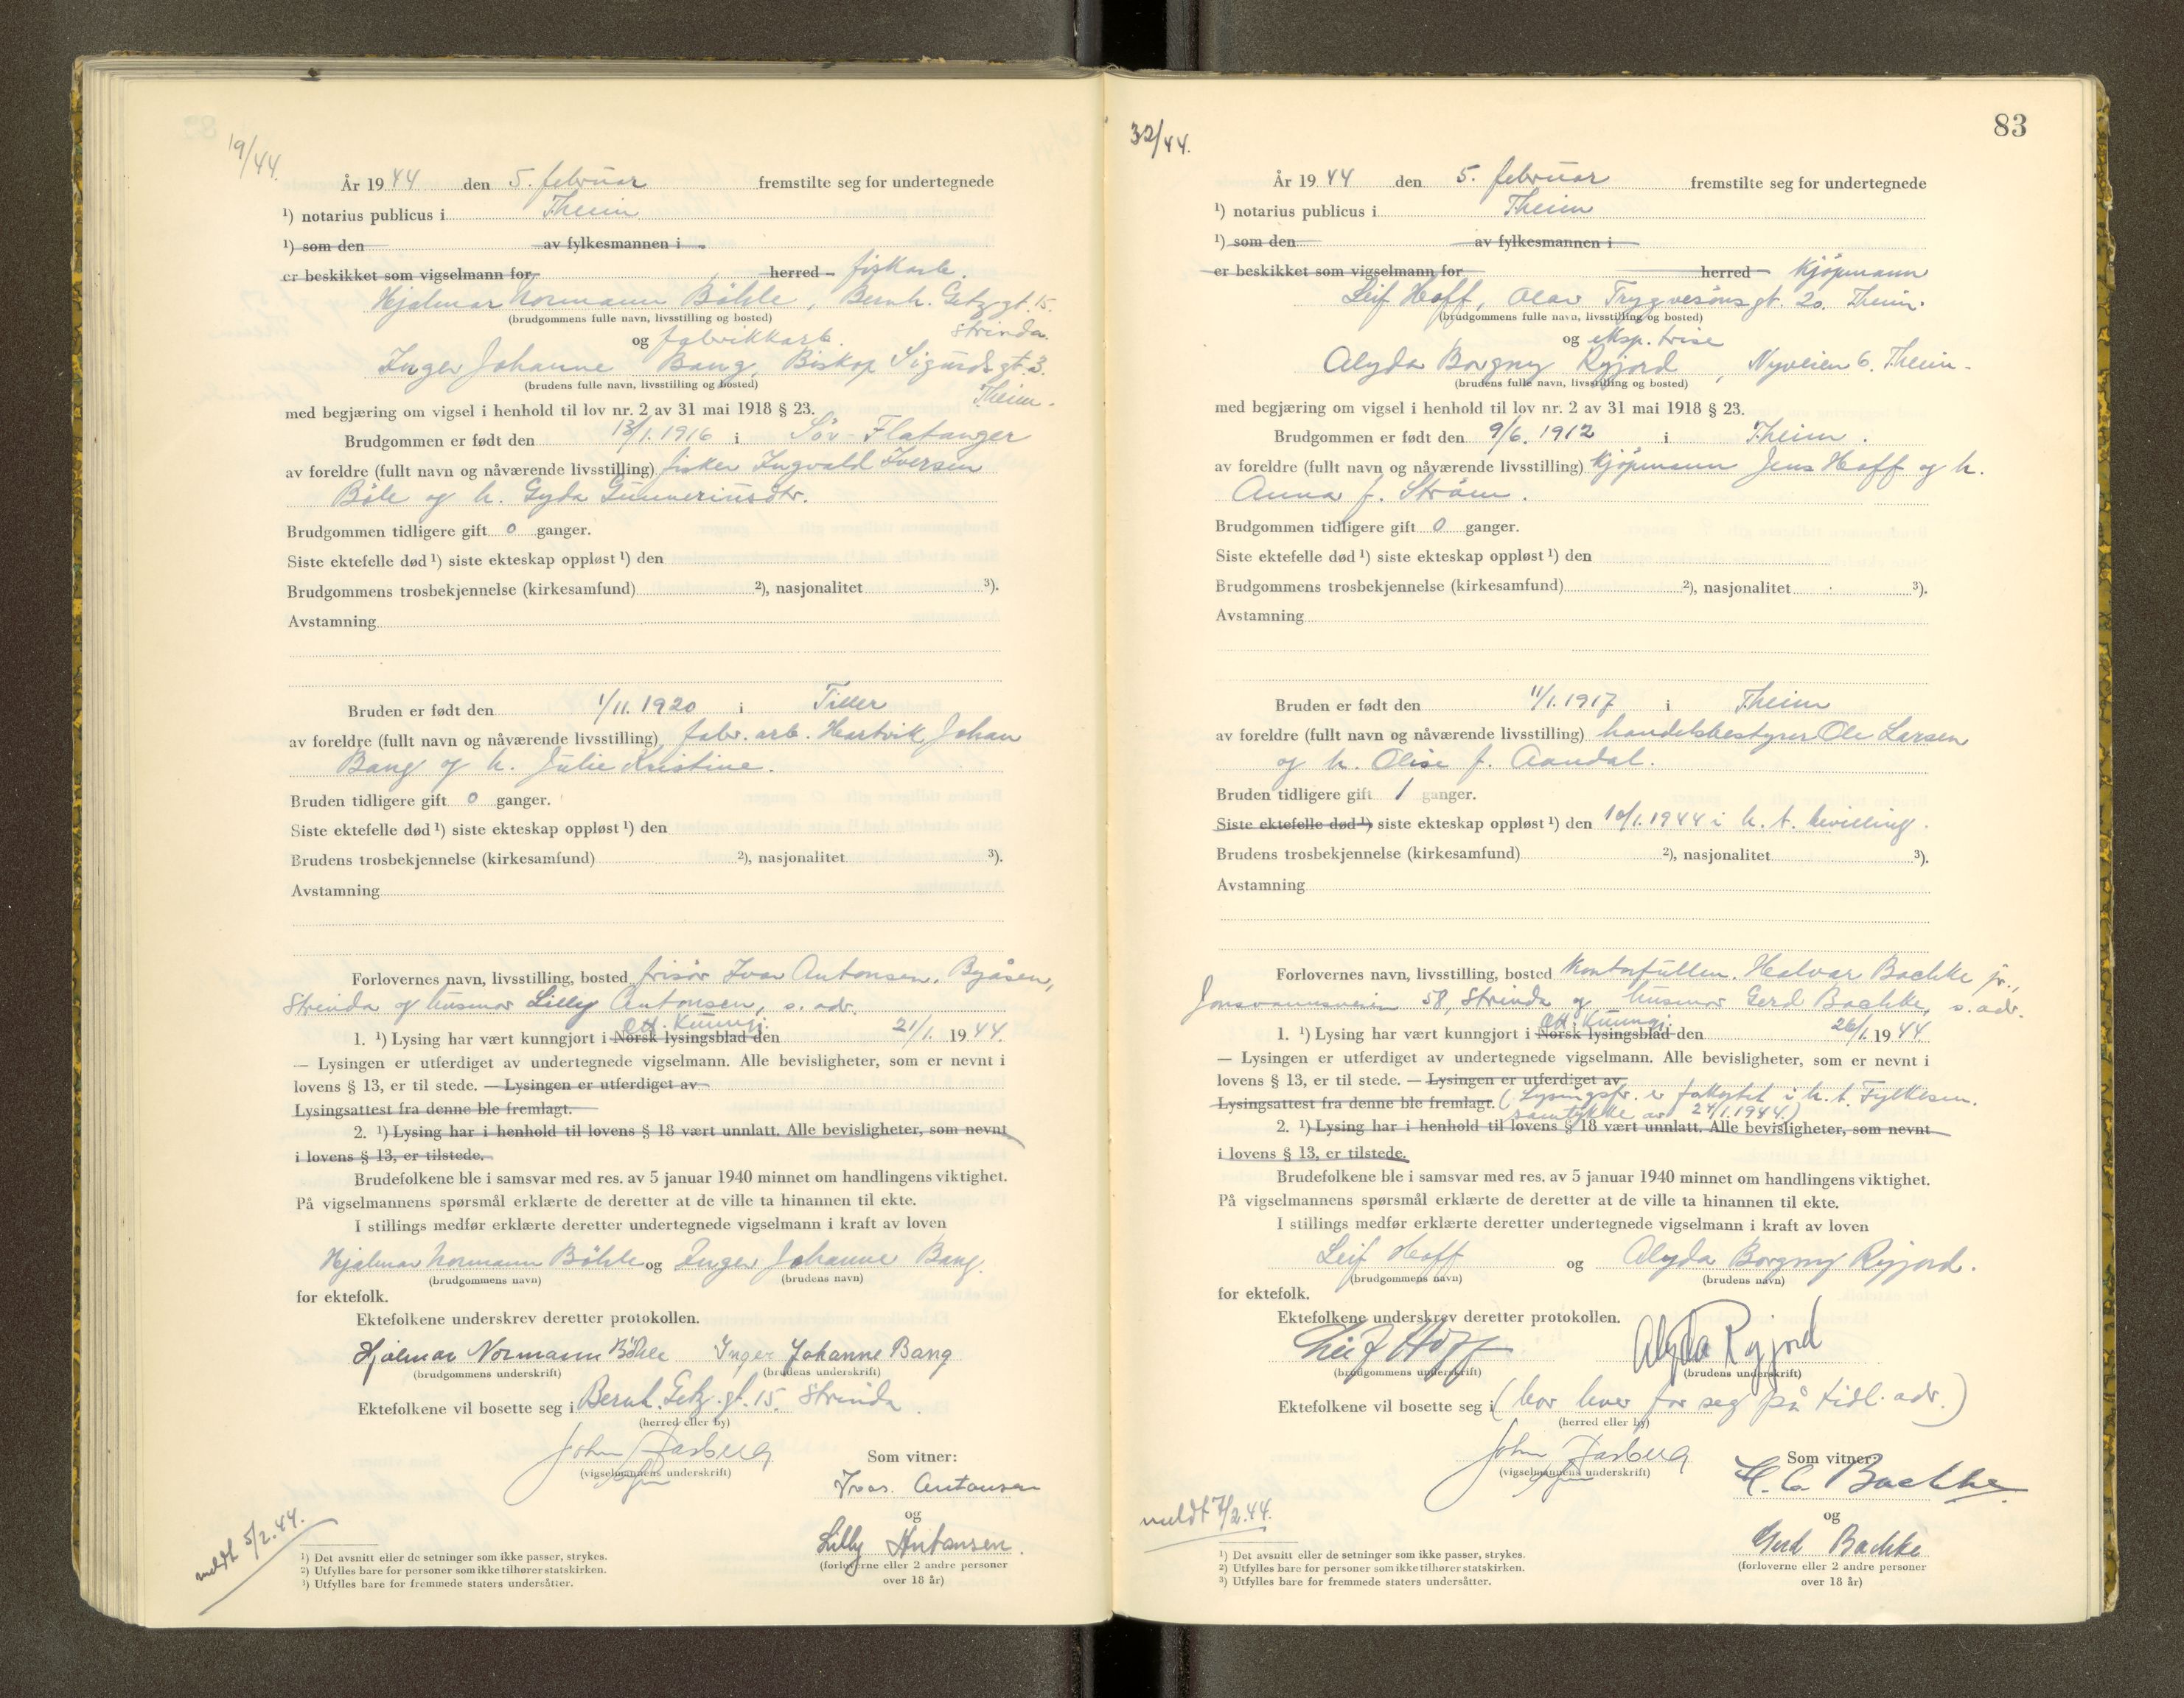 19/44.
År 1944 den 5. februar fremstilte seg for undertegnede
¹) notarius publicus i Theim
¹) som den av fylkesmannen i
er beskikket som vigselmann for, herred fiskarb.
Hjalmar Normann Böhle, Bernh. Getz gt. 15.
(brudgommens fulle navn, livsstilling og bosted) Strinda.
og fabrikkarb.
Inger Johanne Bang, Biskop Sigurds gt. 3.
(brudens fulle navn, livsstilling og bosted) Theim.
med begjæring om vigsel i henhold til lov nr. 2 av 31 mai 1918 § 23.
Brudgommen er født den 13/1. 1916 i Sör-Flatanger
av foreldre (fullt navn og nåværende livsstilling) fisker Ingvald Iversen
Böle og h. Gyda Gunneriusdtr.
Brudgommen tidligere gift 0 ganger.
Siste ektefelle død ¹) siste ekteskap oppløst ¹) den
Brudgommens trosbekjennelse (kirkesamfund) ²), nasjonalitet ³).
Avstamning
Bruden er født den 1/11. 1920 i Tiller
av foreldre (fullt navn og nåværende livsstilling) fabr. arb. Hartvik Johan
Bang og h. Julie Kristine.
Bruden tidligere gift 0 ganger.
Siste ektefelle død ¹) siste ekteskap oppløst ¹) den
Brudens trosbekjennelse (kirkesamfund) ²), nasjonalitet ³).
Avstamning
Forlovernes navn, livsstilling, bosted frisör Ivar Antonsen, Byåsen,
Strinda og husmor Lilly Antonsen, s. adr.
Off. Kunngj.
1. ¹) Lysing har vært kunngjort i Norsk lysingsblad den 21/1. 1944.
— Lysingen er utferdiget av undertegnede vigselmann. Alle bevisligheter, som er nevnt i
lovens § 13, er til stede. — Lysingen er utferdiget av
Lysingsattest fra denne ble fremlagt.
2. ¹) Lysing har i henhold til lovens § 18 vært unnlatt. Alle bevisligheter, som nevnt
i lovens § 13, er tilstede.
Brudefolkene ble i samsvar med res. av 5 januar 1940 minnet om handlingens viktighet.
På vigselmannens spørsmål erklærte de deretter at de ville ta hinannen til ekte.
I stillings medfør erklærte deretter undertegnede vigselmann i kraft av loven
Hjalmar Normann Böhle og Inger Johanne Bang.
(brudgommens navn) (brudens navn)
for ektefolk.
Ektefolkene underskrev deretter protokollen.
Hjalmar Normann Böhle Inger Johanne Bang
(brudgommens underskrift) (brudens underskrift)
Ektefolkene vil bosette seg i Bernh. Getz. gt. 15. Strinda.
(herred eller by)
Som vitner:
(vigselmannens underskrift)
Ivar. Antonsen
og
Lilly Antonsen.
(forloverne eller 2 andre personer
over 18 år)
meldt 5/2.44.
¹) Det avsnitt eller de setninger som ikke passer, strykes.
²) Utfylles bare for personer som ikke tilhører statskirken.
³) Utfylles bare for fremmede staters undersåtter.
83
32/44.
År 1944 den 5. februar fremstilte seg for undertegnede
¹) notarius publicus i Theim
¹) som den av fylkesmannen i
er beskikket som vigselmann for herred Kjöpmann
Leif Hoff, Olav Trygvesöns gt. 20. Theim.
(brudgommens fulle navn, livsstilling og bosted)
og eksp. trise
Alyda Borgny Ryjord, Nyveien 6. Theim.
(brudens fulle navn, livsstilling og bosted)
med begjæring om vigsel i henhold til lov nr. 2 av 31 mai 1918 § 23.
Brudgommen er født den 9/6. 1912 i Theim.
av foreldre (fullt navn og nåværende livsstilling) Kjöpmann Jens Hoff og h.
Anna f. Ström.
Brudgommen tidligere gift 0 ganger.
Siste ektefelle død ¹) siste ekteskap oppløst ¹) den
Brudgommens trosbekjennelse (kirkesamfund) ²), nasjonalitet ³).
Avstamning
Bruden er født den 11/1. 1917 i Theim
av foreldre (fullt navn og nåværende livsstilling) handelsbestyrer Ole Larsen
og h. Olise f. Aandal.
Bruden tidligere gift 1 ganger.
Siste ektefelle død ¹) siste ekteskap oppløst ¹) den 10/1. 1944 i h. t. bevilling.
Brudens trosbekjennelse (kirkesamfund) ²), nasjonalitet ³).
Avstamning
Forlovernes navn, livsstilling, bosted Kontorfullm. Halvar Bachke jr.,
Jonsvannsveien 58, Strinda og husmor Gerd Bachke, s. adr.
Off. Kunngj.
1. ¹) Lysing har vært kunngjort i Norsk lysingsblad den 26/1. 1944
— Lysingen er utferdiget av undertegnede vigselmann. Alle bevisligheter, som er nevnt i
lovens § 13, er til stede. — Lysingen er utferdiget av
Lysingsattest fra denne ble fremlagt. (Lysingsfr. er forkortet i h. t. Fylkesm.
samtykke av 24/1. 1944.)
2. ¹) Lysing har i henhold til lovens § 18 vært unnlatt. Alle bevisligheter, som nevnt
i lovens § 13, er tilstede.
Brudefolkene ble i samsvar med res. av 5 januar 1940 minnet om handlingens viktighet.
På vigselmannens spørsmål erklærte de deretter at de ville ta hinannen til ekte.
I stillings medfør erklærte deretter undertegnede vigselmann i kraft av loven
Leif Hoff og Alyda Borgny Ryjord.
(brudgommens navn) (brudens navn)
for ektefolk.
Ektefolkene underskrev deretter protokollen.
Leif Hoff Alyda Ryjord
(brudgommens underskrift) (brudens underskrift)
Ektefolkene vil bosette seg i (bor hver for seg på tidl. adr.)
(herred eller by)
Som vitner:
(vigselmannens underskrift)
H. C. Bachke
og
Gerd Bachke
(forloverne eller 2 andre personer
over 18 år)
meldt 7/2.44.
¹) Det avsnitt eller de setninger som ikke passer, strykes.
²) Utfylles bare for personer som ikke tilhører statskirken.
³) Utfylles bare for fremmede staters undersåtter.